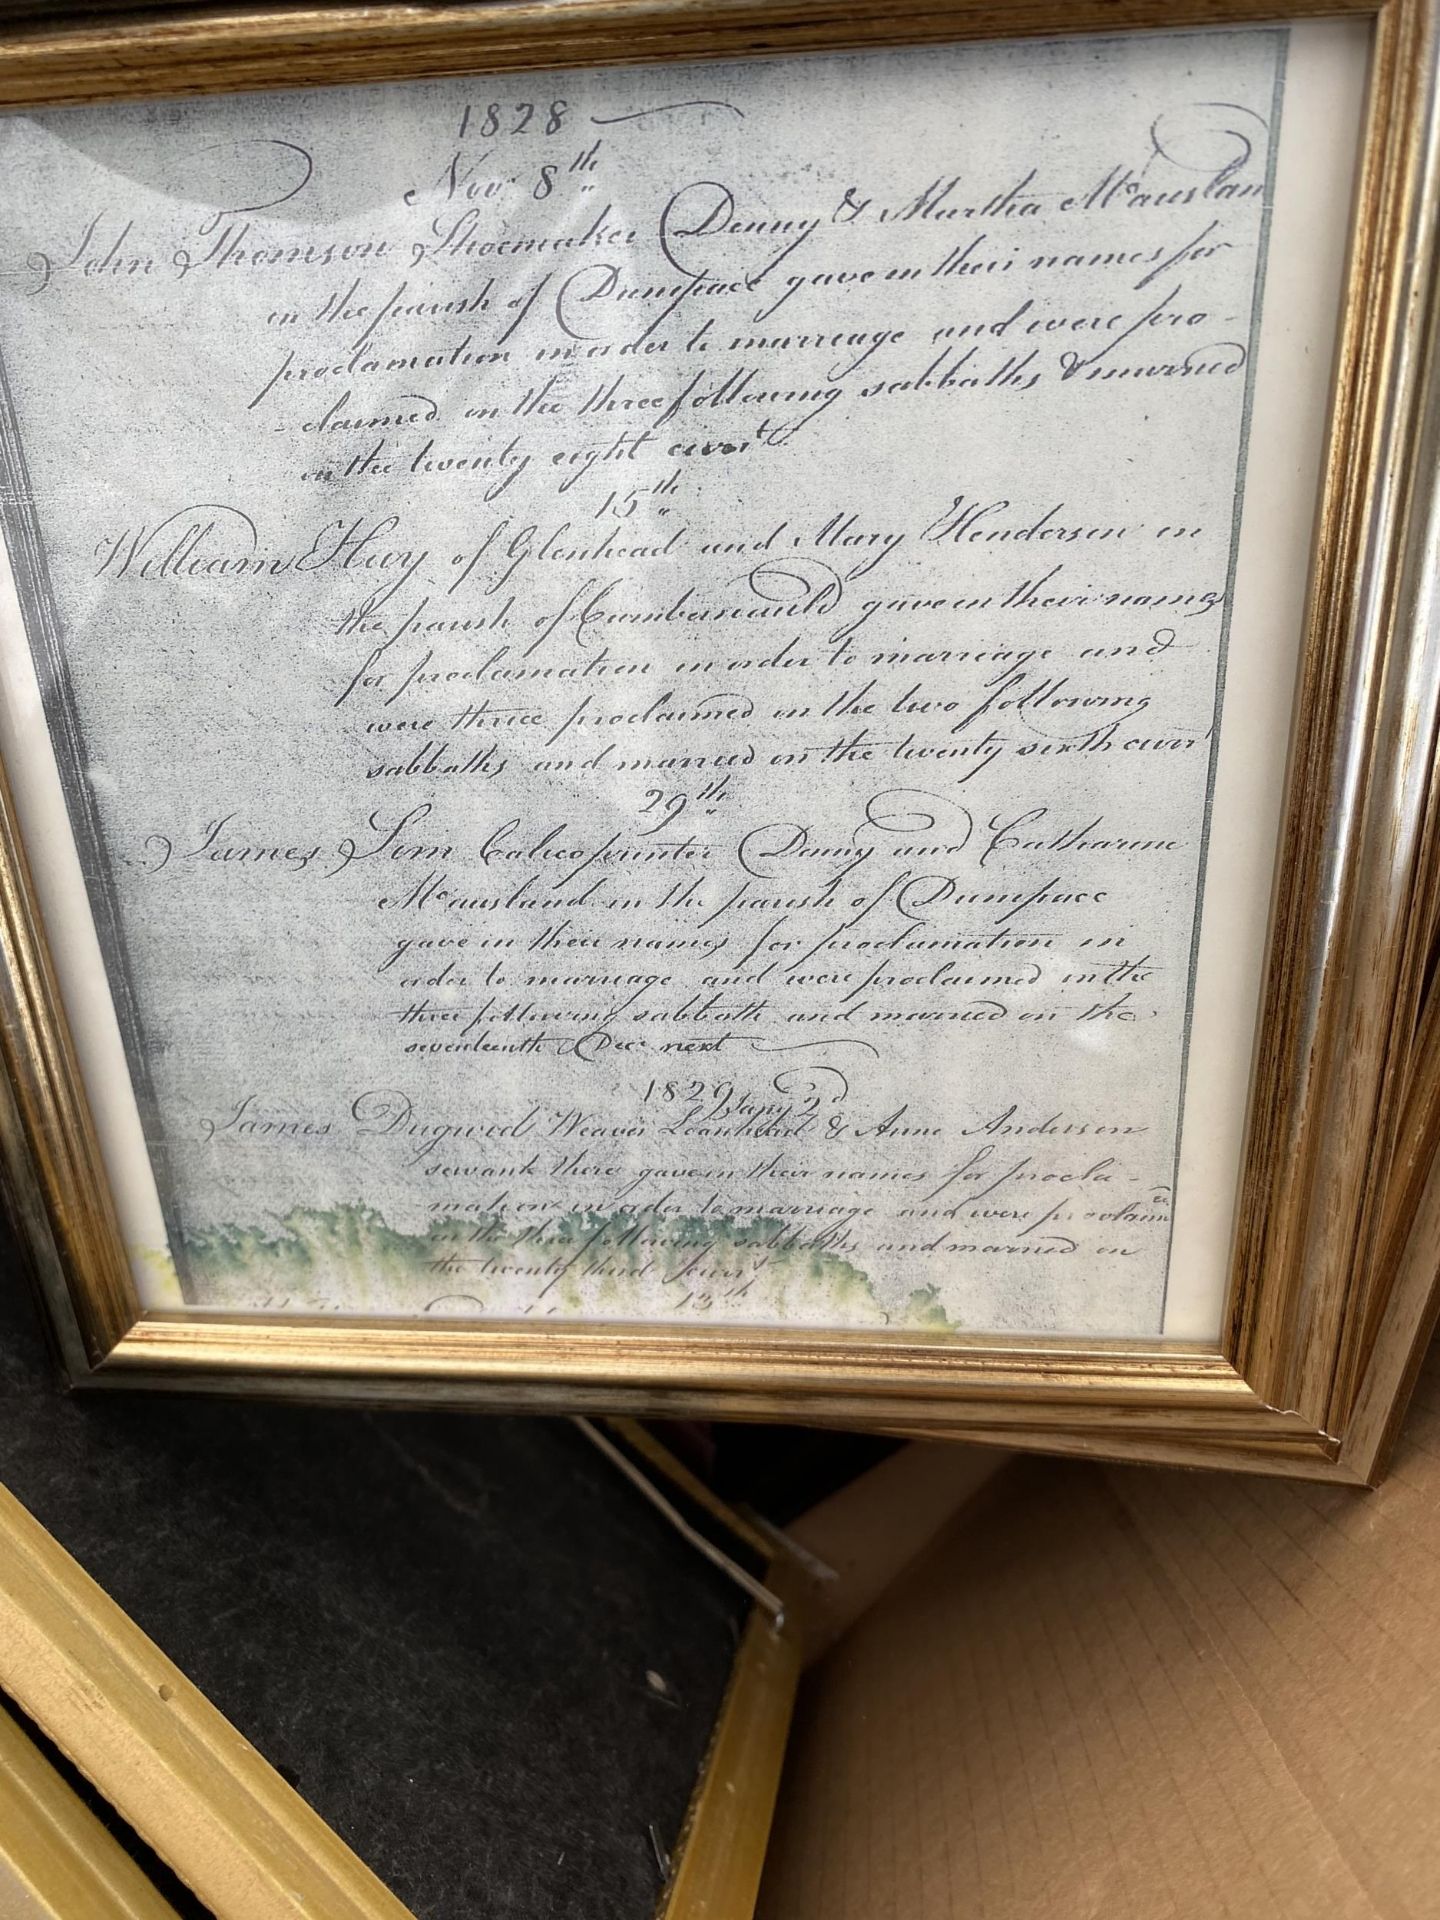 1828
Nov 8th
John Thomson Shoemaker Denny & Martha Mcauslan
in the parish of Dunipace gave in their names for
proclamation in order to marriage and were pro-
-claimed on the three following sabbaths & married
on the twenty eight currt
15th
William Hay of Glenhead and Mary Henderson in
the parish of Cumbernauld gave in their names
for proclamation in order to marriage and
were thrice proclaimed on the two following
sabbaths and married on the twenty sixth curr
29th
James Sim Calicoprinter Denny and Catharine
Mcausland in the parish of Dunipace
gave in their names for proclamation in
order to marriage and were proclaimed on the
three following sabbath and married on the
seventeenth Decr next
1829 Jany 2d
James Dugwid Weaver & Anne Anderson
servant there gave in their names for procla-
mation in order to marriage and were proclaimed
on the three following sabbaths and married on
the twenty third currt
13th